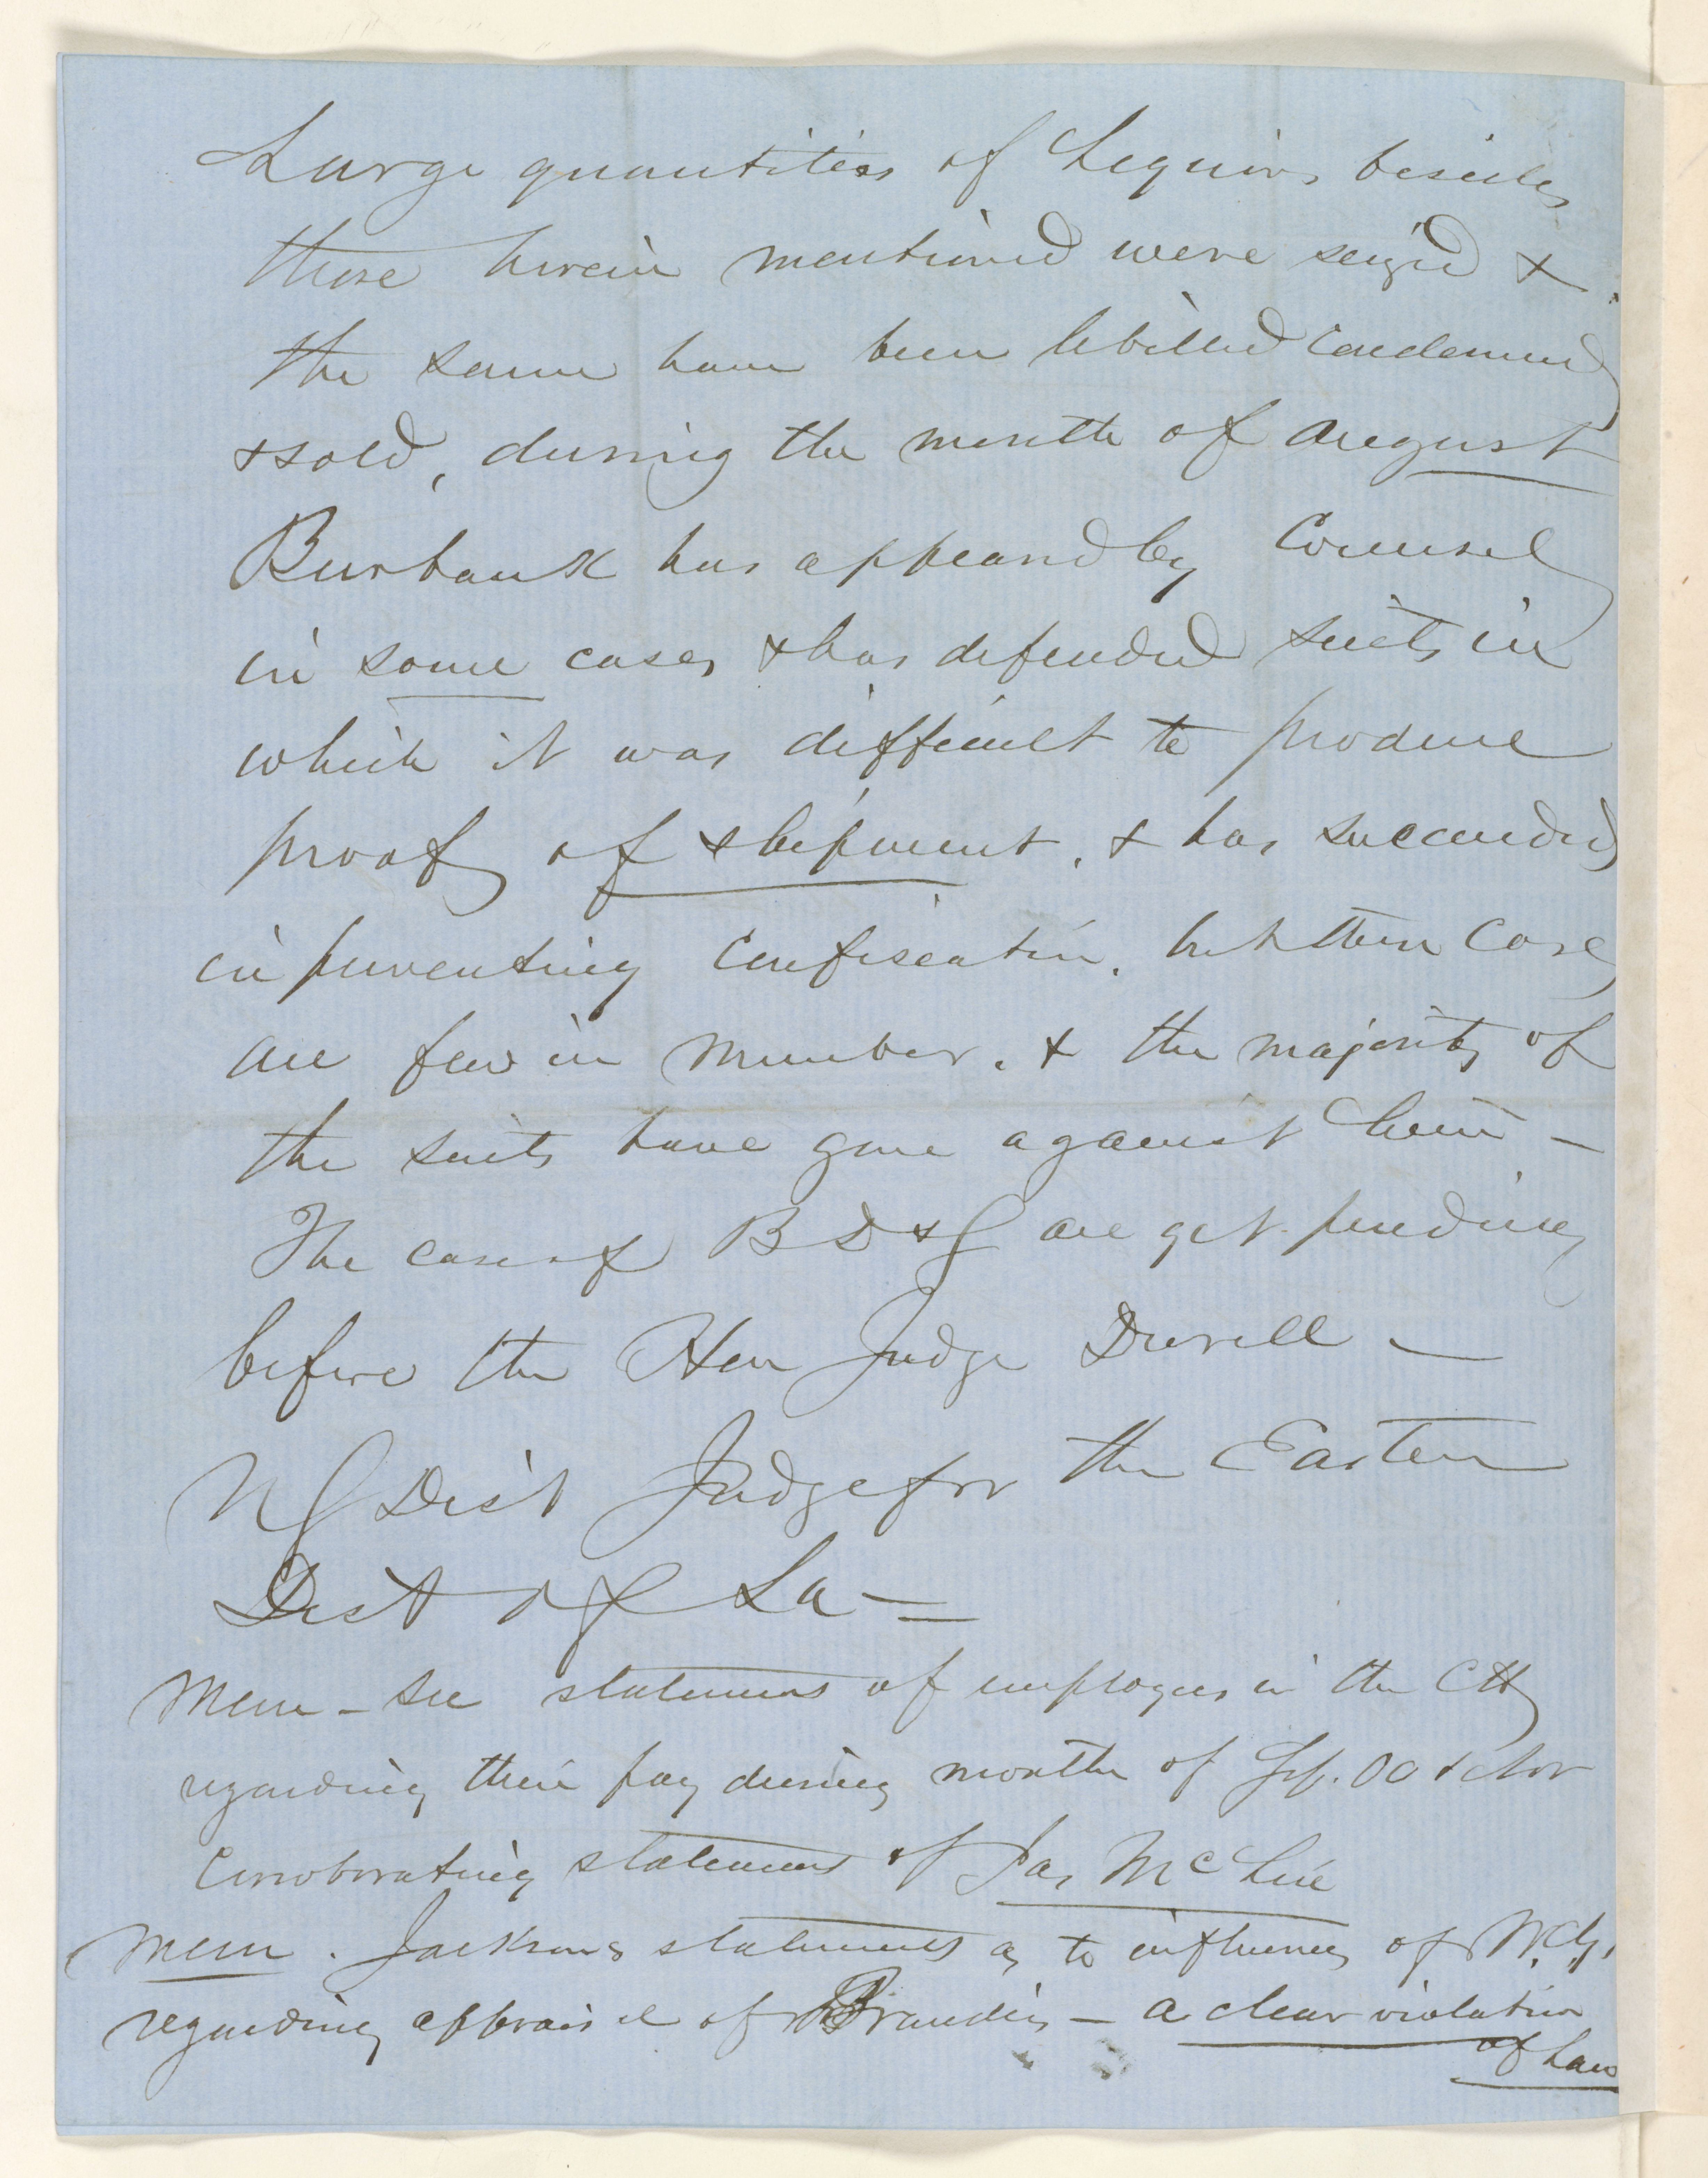 Large quantities of Liquors besides
those herein mentioned were seized &
the same have been libelled condemned
& sold, during the month of August
Burbank has appeared by Counsel
in some cases & has defended suits in
which it was difficult to produce
proof of shipment, & has succeeded
in preventing Confiscation. but these Cases
are few in number. & the majority of
the suits have gone against him —
The cases of B D & are yet pending
before the Hon Judge Durell —
US Dist Judge for the Eastern
Dist of La —
Mem - See statements of employees in the CH
regarding their pay during month of Sep. Oct & Nov
Corroborating statement of Jas McLine
Mem. Jacksons statements as to influence of
regarding appraisel of Brandies — a clear violation
of Law